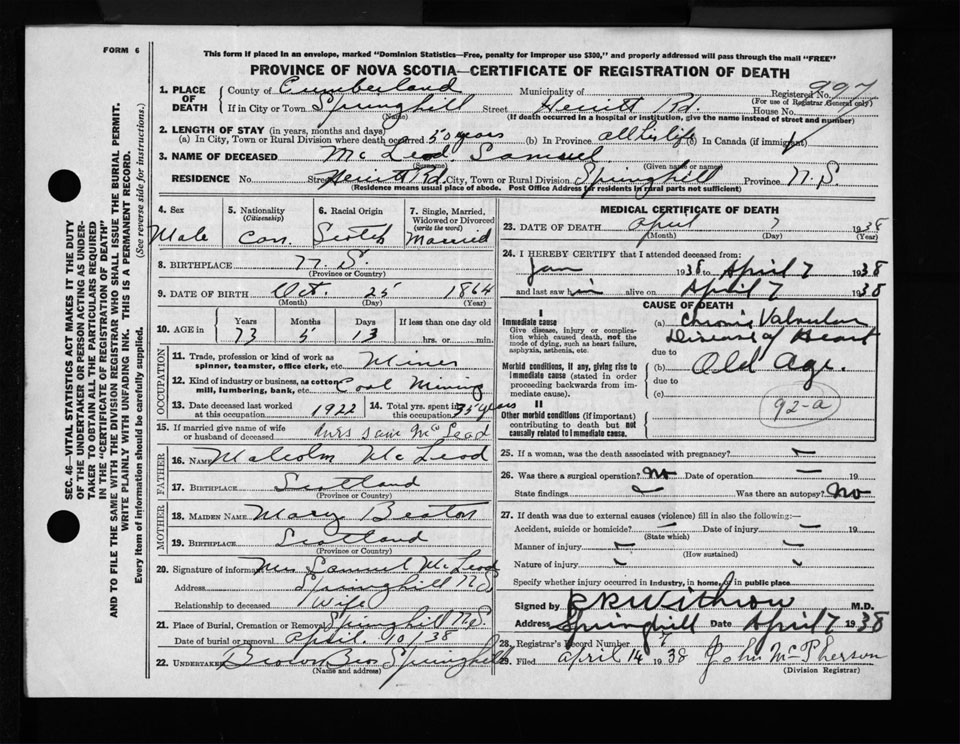 FORM 6
This form if placed in an envelope, marked "Dominion Statistics—Free, penalty for improper use $300," and properly addressed will pass through the mail "FREE"
PROVINCE OF NOVA SCOTIA—CERTIFICATE OF REGISTRATION OF DEATH
1. PLACE OF DEATH County of Cumberland Municipality of Registered No. 997
(For use of Registrar General only)
If in City or Town Springhill Street Herritt Rd. House No.
(Name) (If death occurred in a hospital or institution, give the name instead of street and number)
2. LENGTH OF STAY (in years, months and days)
(a) In City, Town or Rural Division where death occurred 50 years (b) In Province all his life (c) In Canada (if immigrant)
3. NAME OF DECEASED McLeod Samuel
(Surname) (Given name or names)
RESIDENCE No. Street Herritt Rd. City, Town or Rural Division Springhill Province N.S.
(Residence means usual place of abode. Post Office Address for residents in rural parts not sufficient)
4. Sex Male
5. Nationality (Citizenship) Can.
6. Racial Origin Scotch
7. Single, Married, Widowed or Divorced (write the word) Married
8. BIRTHPLACE N.S.
(Province or Country)
9. DATE OF BIRTH Oct. 25 1864
(Month) (Day) (Year)
10. AGE in Years Months Days If less than one day old
73 5 13 hrs. or min.
OCCUPATION
11. Trade, profession or kind of work as spinner, teamster, office clerk, etc. Miner
12. Kind of industry or business, as cotton mill, lumbering, bank, etc. Coal Mining
13. Date deceased last worked at this occupation 1922
14. Total yrs. spent in this occupation 35 years
15. If married give name of wife or husband of deceased Mrs Sam McLeod
FATHER
16. NAME Malcolm McLeod
17. BIRTHPLACE Scotland
(Province or Country)
MOTHER
18. MAIDEN NAME Mary Beaton
19. BIRTHPLACE Scotland
(Province or Country)
20. Signature of informant Mrs Samuel McLeod
Address Springhill N.S.
Relationship to deceased Wife
21. Place of Burial, Cremation or Removal Springhill N.S.
Date of burial or removal April 10/38
22. UNDERTAKER Brown Bros Springhill
(Name and address)
MEDICAL CERTIFICATE OF DEATH
23. DATE OF DEATH April 7 1938
(Month) (Day) (Year)
24. I HEREBY CERTIFY that I attended deceased from:
Jan 1938 to April 7 1938
and last saw him alive on April 7 1938
CAUSE OF DEATH
I
Immediate cause
Give disease, injury or complication which caused death, not the mode of dying, such as heart failure, asphyxia, asthenia, etc.
(a) Chronic Valvular Disease of Heart
due to
Morbid conditions, if any, giving rise to immediate cause (stated in order proceeding backwards from immediate cause).
(b) Old Age.
due to
(c)
92-a
II
Other morbid conditions (if important) contributing to death but not causally related to immediate cause.
25. If a woman, was the death associated with pregnancy? —
26. Was there a surgical operation? No Date of operation 19
State findings — Was there an autopsy? No
27. If death was due to external causes (violence) fill in also the following:—
Accident, suicide or homicide? — Date of injury — 19
(State which)
Manner of injury —
(How sustained)
Nature of injury —
Specify whether injury occurred in industry, in home, or in public place
Signed by R R Withrow M.D.
Address Springhill Date April 7 1938
28. Registrar's Record Number 7
29. Filed April 14 1938 John McPherson
(Division Registrar)
SEC. 46—VITAL STATISTICS ACT MAKES IT THE DUTY
OF THE UNDERTAKER OR PERSON ACTING AS UNDER-
TAKER TO OBTAIN ALL THE PARTICULARS REQUIRED
IN THE "CERTIFICATE OF REGISTRATION OF DEATH"
AND TO FILE THE SAME WITH THE DIVISION REGISTRAR WHO SHALL ISSUE THE BURIAL PERMIT.
WRITE PLAINLY WITH UNFADING INK. THIS IS A PERMANENT RECORD.
Every item of information should be carefully supplied. (See reverse side for instructions.)